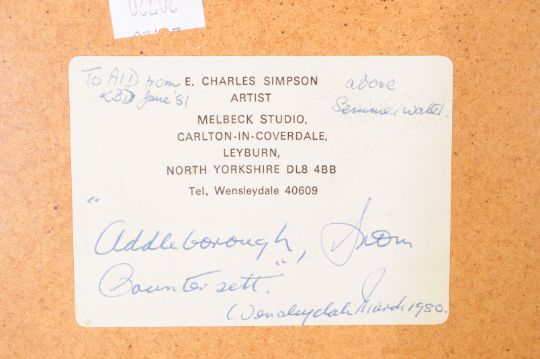 To AID from
KBD June '81
E. CHARLES SIMPSON
ARTIST
MELBECK STUDIO,
CARLTON-IN-COVERDALE,
LEYBURN,
NORTH YORKSHIRE DL8 4BB
Tel. Wensleydale 40609
above
Semmerwater.
"Addleborough, from
Countersett."
Wensleydale March 1980.